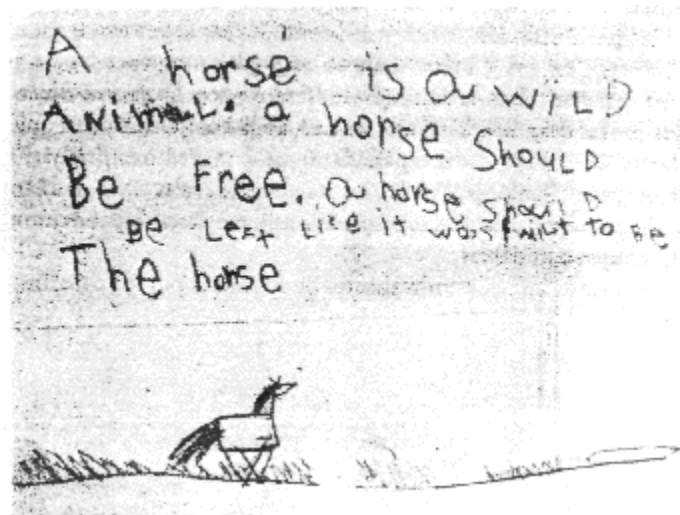 A horse is a WILD
ANimaL. a horse SHoULD
Be Free. a horse SHouLD
Be Left Like it was mint to Be
The horse